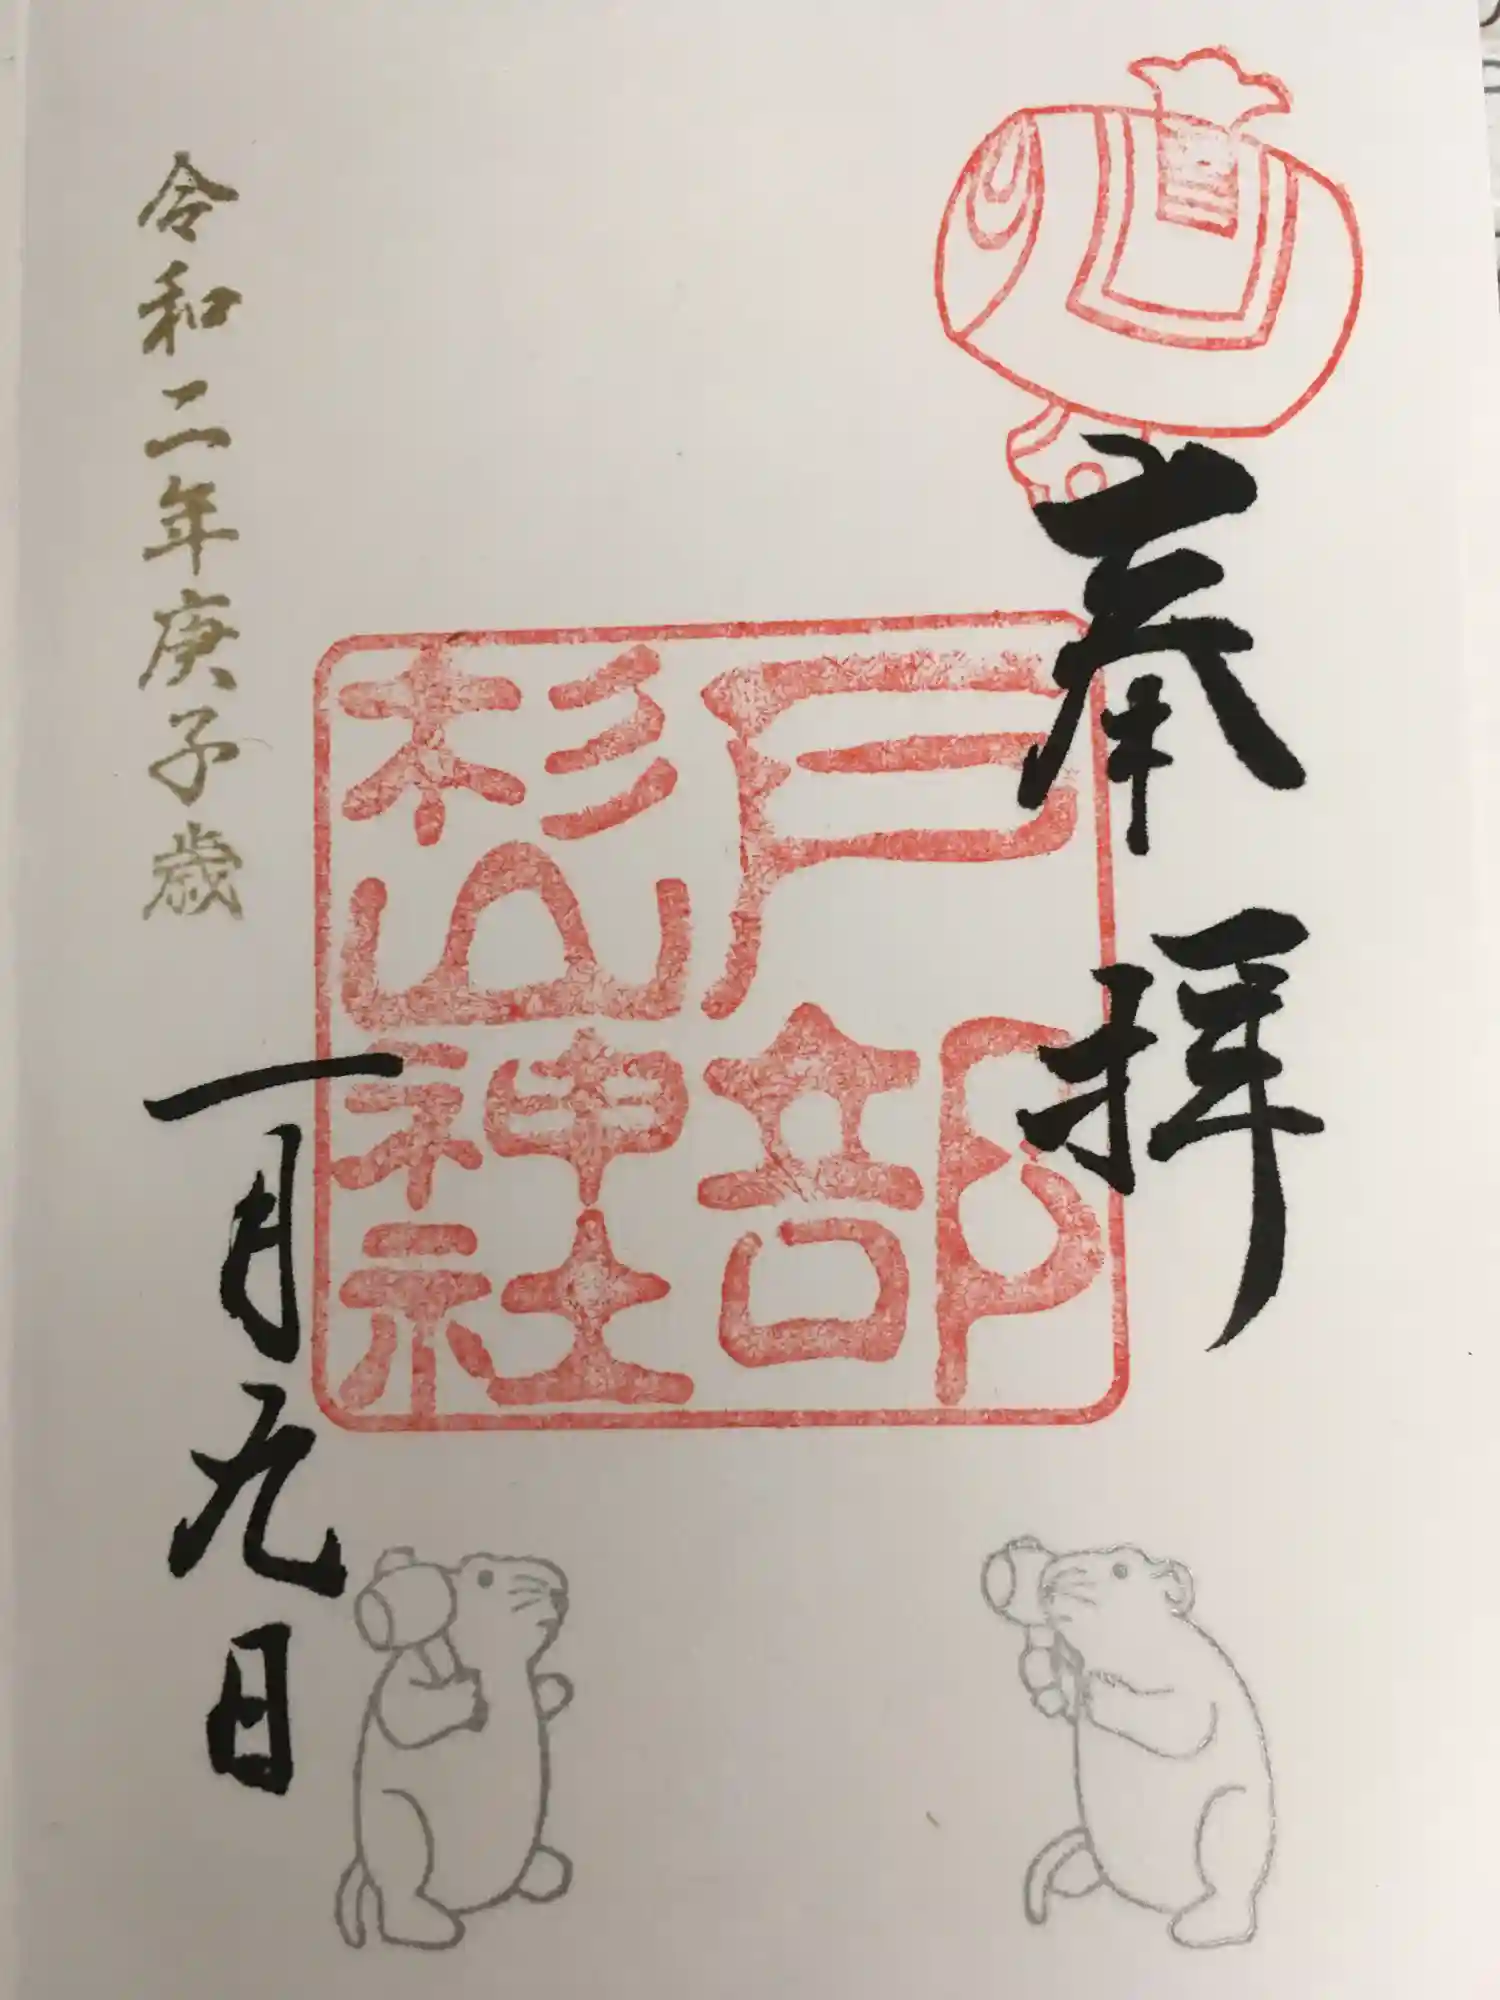 奉拝
戸部
杉山神社
令和二年庚子歳
一月九日